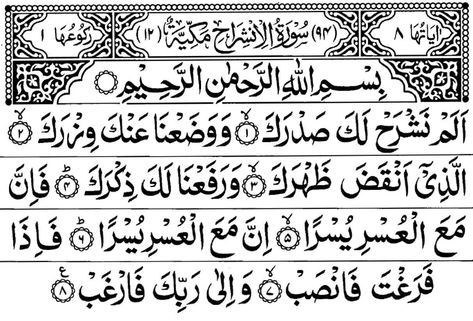 اٰيَاتُهَا ٨ (٩٤) سُوْرَةُ الْاِنْشِرَاحِ مَكِّيَّةٌ (١٢) رُكُوْعُهَا ١
بِسْمِ اللّٰهِ الرَّحْمٰنِ الرَّحِيْمِ
اَلَمْ نَشْرَحْ لَكَ صَدْرَكَ ۙ﴿١﴾ وَوَضَعْنَا عَنْكَ وِزْرَكَ ۙ﴿٢﴾
الَّذِىْٓ اَنْقَضَ ظَهْرَكَ ۙ﴿٣﴾ وَرَفَعْنَا لَكَ ذِكْرَكَ ؕ﴿٤﴾ فَاِنَّ
مَعَ الْعُسْرِ يُسْرًا ۙ﴿٥﴾ اِنَّ مَعَ الْعُسْرِ يُسْرًا ؕ﴿٦﴾ فَاِذَا
فَرَغْتَ فَانْصَبْ ۙ﴿٧﴾ وَاِلٰى رَبِّكَ فَارْغَبْ ﴿٨﴾ ع